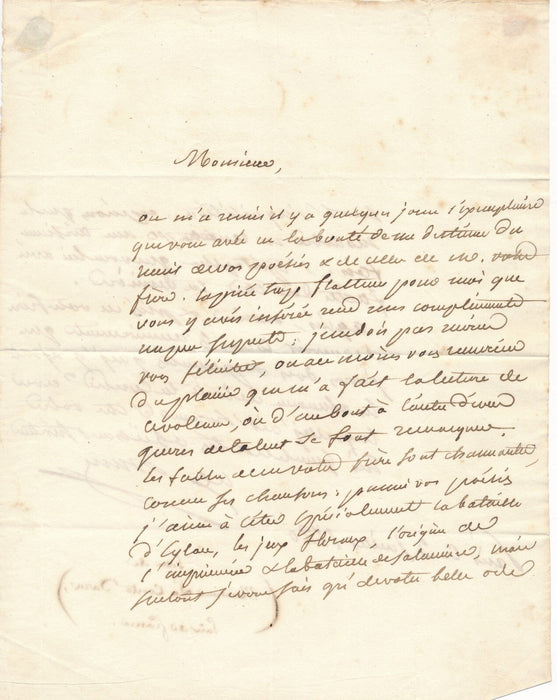 Monsieur,
on m'a remis il y a quelques jours l'exemplaire
que vous avés eu la bonté de me destiner du
recueil de vos poésies & de celles de m. votre
frère. la pièce trop flatteuse pour moi que
vous y avés insérée rend mes compliments
un peu suspects; je ne dois pas moins
vous féliciter, ou au moins vous remercier
du plaisir que m'a fait la lecture de
ce volume, où d'un bout à l'autre divers
genres de talent se font remarquer.
les fables de m. votre frère sont charmantes,
comme ses chansons; parmi vos poésies
j'aime à citer spécialement la bataille
d'Eylau, les jeux floraux, l'origine de
l'imprimerie & la bataille de Salamine, mais
surtout je vous sais gré de votre belle ode